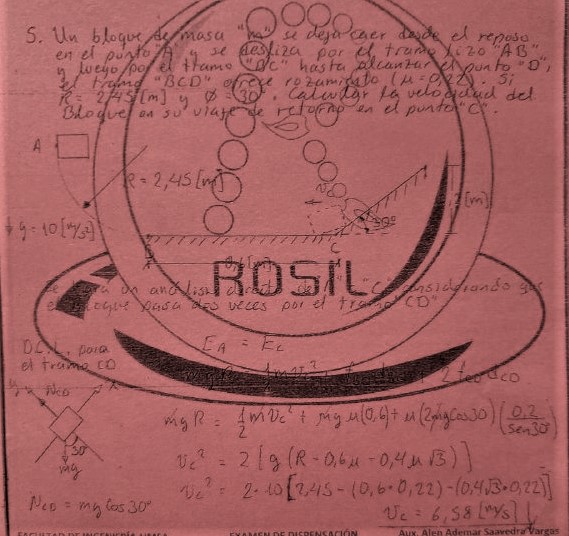 5. Un bloque de masa "m" se deja caer desde el reposo
en el punto A y se desliza por el tramo lizo "AB"
y luego por el tramo "BC" hasta alcanzar el punto "D",
el tramo "BCD" ofrece rozamiento (μ = 0,22). Si
R = 2,45 [m] y φ = 30°. Calcular la velocidad del
Bloque en su viaje de retorno en el punto "C".
A
R = 2,45 [m]
g = 10 [m/s²]
Vc
30°
[m]
C
ROSIL
un análisis considerando que
el bloque pasa dos veces por el tramo "CD"
D.C.L. para
el tramo CD
E_A = E_C
y N_CD x
30°
mg
mgR = 1/2 m Vc² + mgμ(0,6) + μ(2mgCos30)(0.2/sen30)
Vc² = 2[g(R - 0,6μ - 0,4μ√3)]
Vc² = 2·10[2,45 - (0,6·0,22) - (0,4√3·0,22)]
N_CD = mg Cos 30°
Vc = 6,58 [m/s]
FACULTAD DE INGENIERÍA UMSA EXAMEN DE DISPENSACIÓN Aux. Alen Ademar Saavedra Vargas